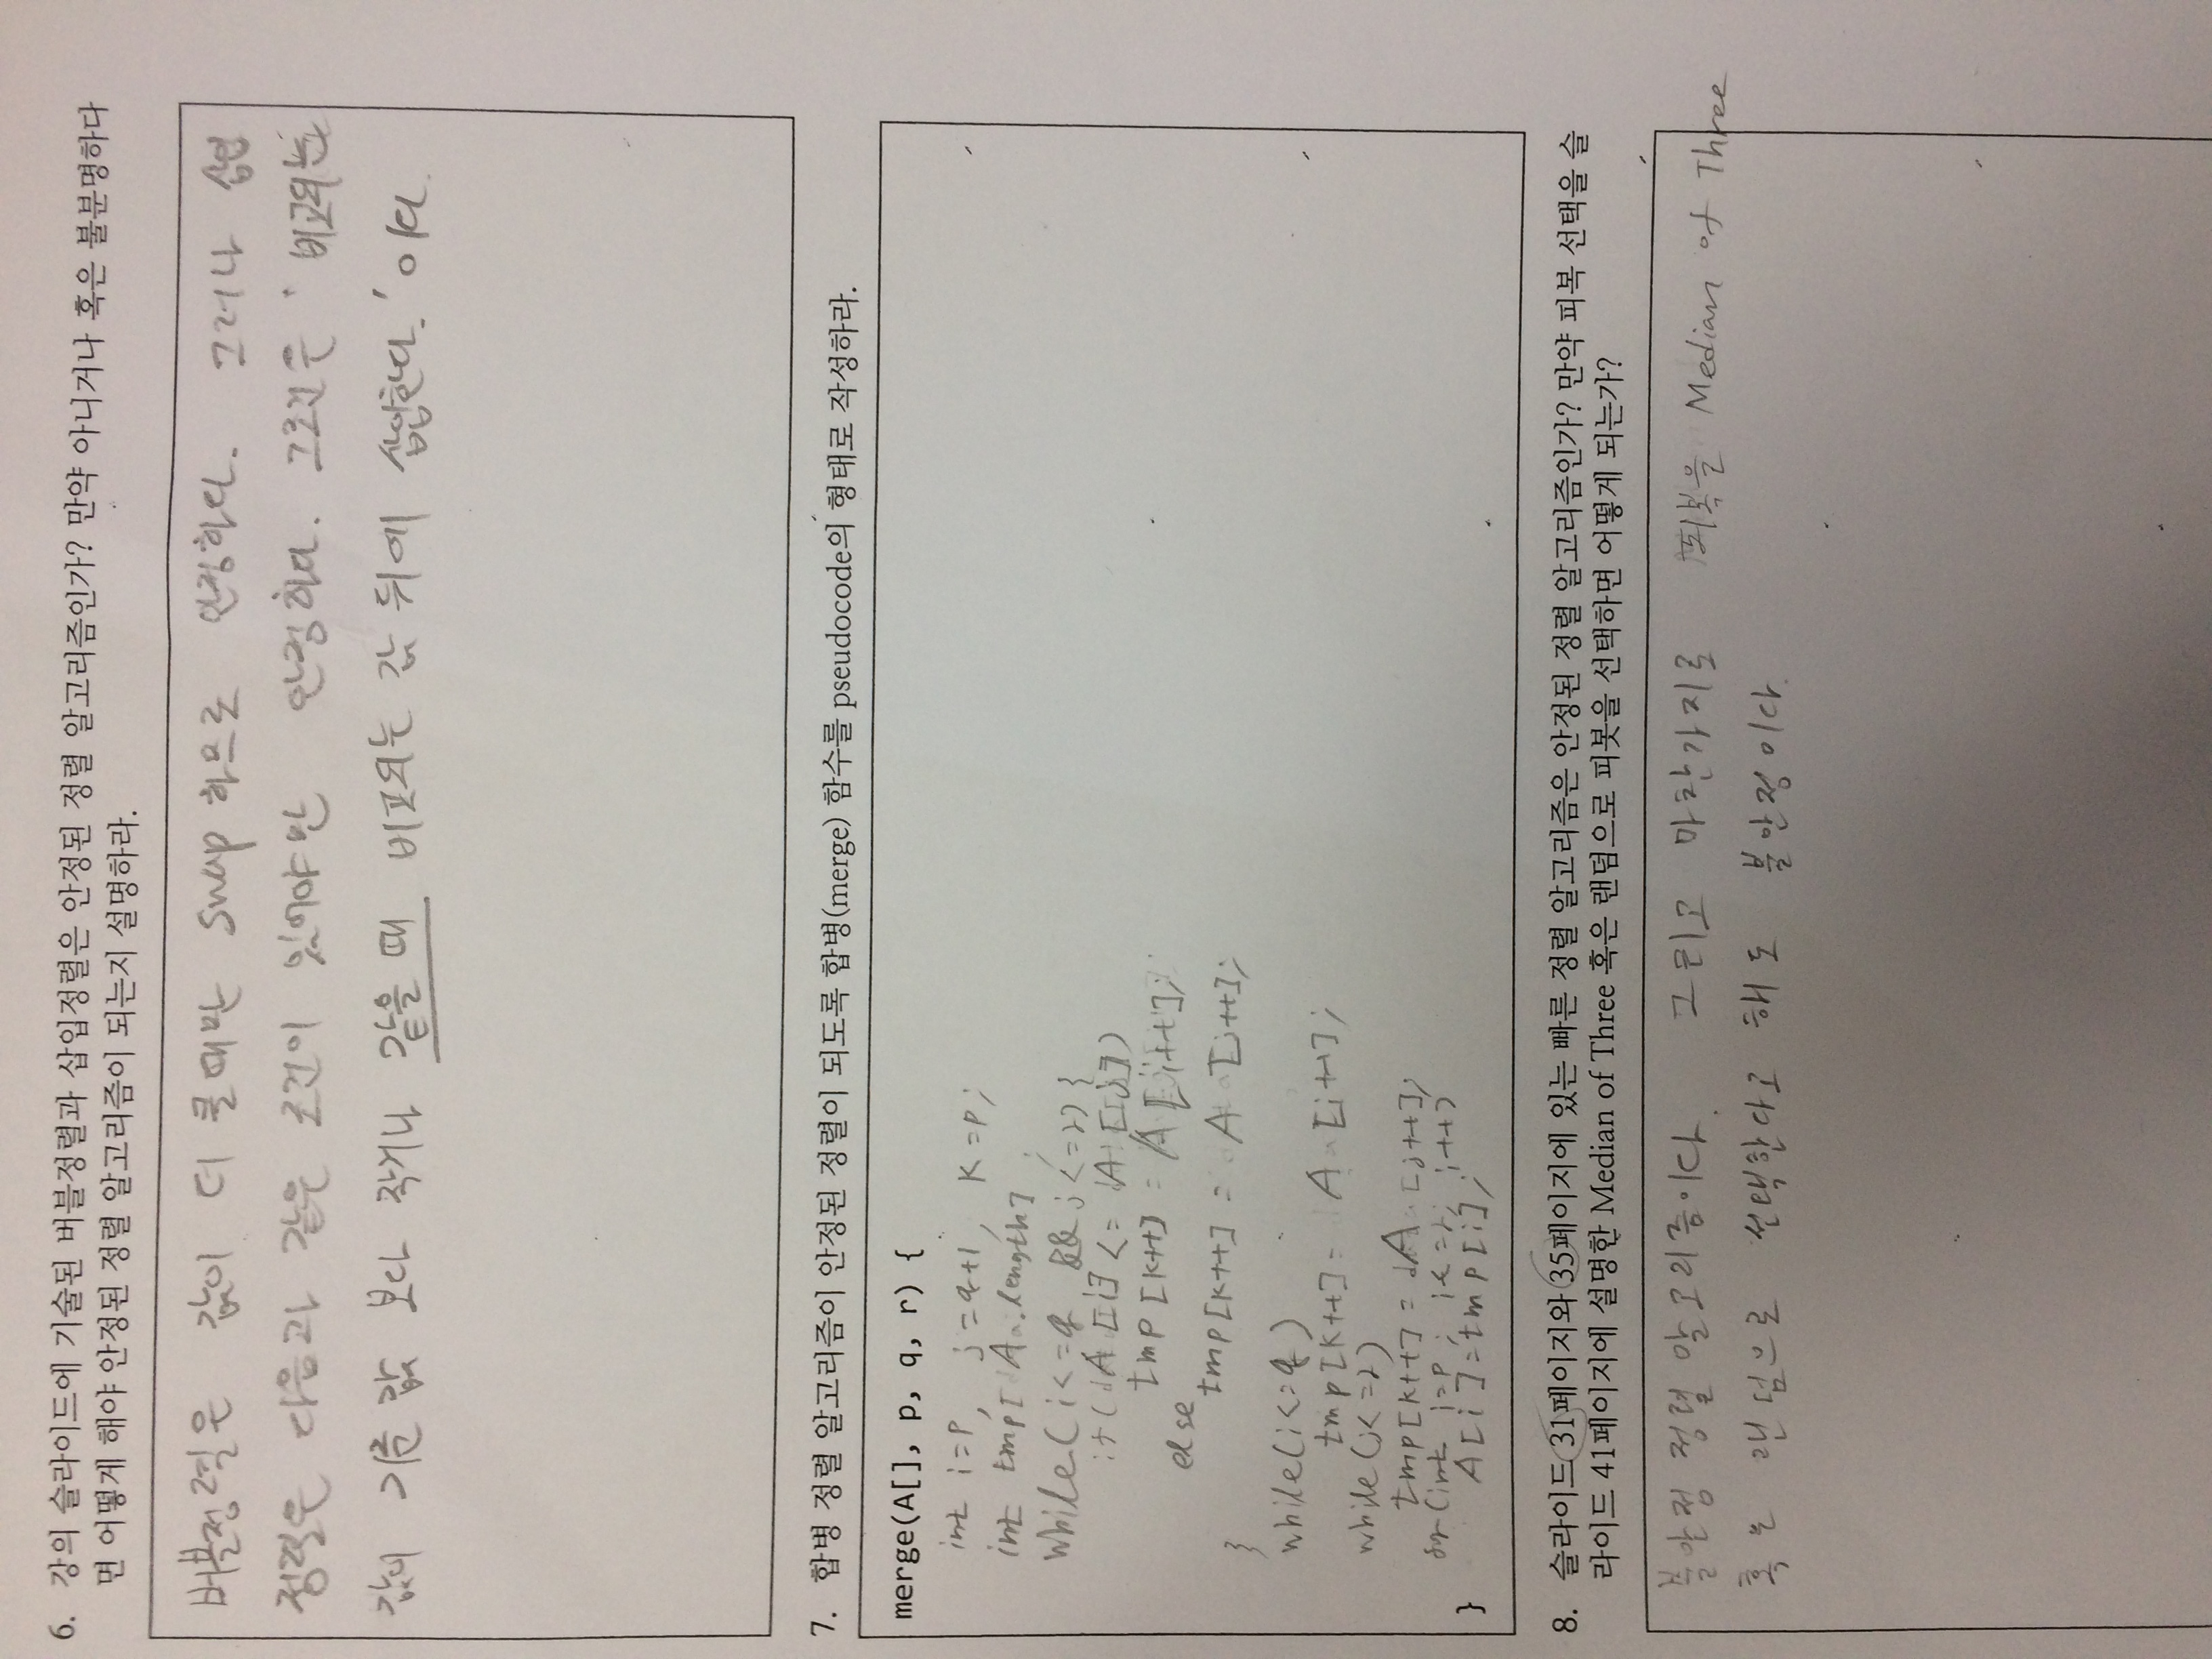 6. 강의 슬라이드에 기술된 버블정렬과 삽입정렬은 안정된 정렬 알고리즘인가? 만약 아니거나 혹은 불분명하다
면 어떻게 해야 안정된 정렬 알고리즘이 되는지 설명하라.
버블정렬은 값이 더 클때만 swap 하므로 안정하다. 그러나 삽입
정렬은 다음과 같은 조건이 있어야만 안정하다. 그조건은 '비교되는
값이 기준 값 보다 작거나 같을 때 비교되는 값 뒤에 삽입한다.'이다.
7. 합병 정렬 알고리즘이 안정된 정렬이 되도록 합병(merge) 함수를 pseudocode의 형태로 작성하라.
merge(A[], p, q, r) {
int i=p, j=q+1, k=p;
int tmp[A.length];
while(i<=q && j<=r){
if(A[i] <= A[j])
tmp[k++] = A[i++];
else
tmp[k++] = A[j++];
}
while(i<=q)
tmp[k++] = A[i++];
while(j<=r)
tmp[k++] = A[j++];
for(int i=p; i<=r; i++)
A[i]=tmp[i];
}
8. 슬라이드 31페이지와 35페이지에 있는 빠른 정렬 알고리즘은 안정된 정렬 알고리즘인가? 만약 피복 선택을 슬
라이드 41페이지에 설명한 Median of Three 혹은 랜덤으로 피봇을 선택하면 어떻게 되는가?
불안정 정렬 알고리즘이다. 그리고 마찬가지로 피복을 Median of Three
혹은 랜덤으로 선택한다고 해도 불안정이다.